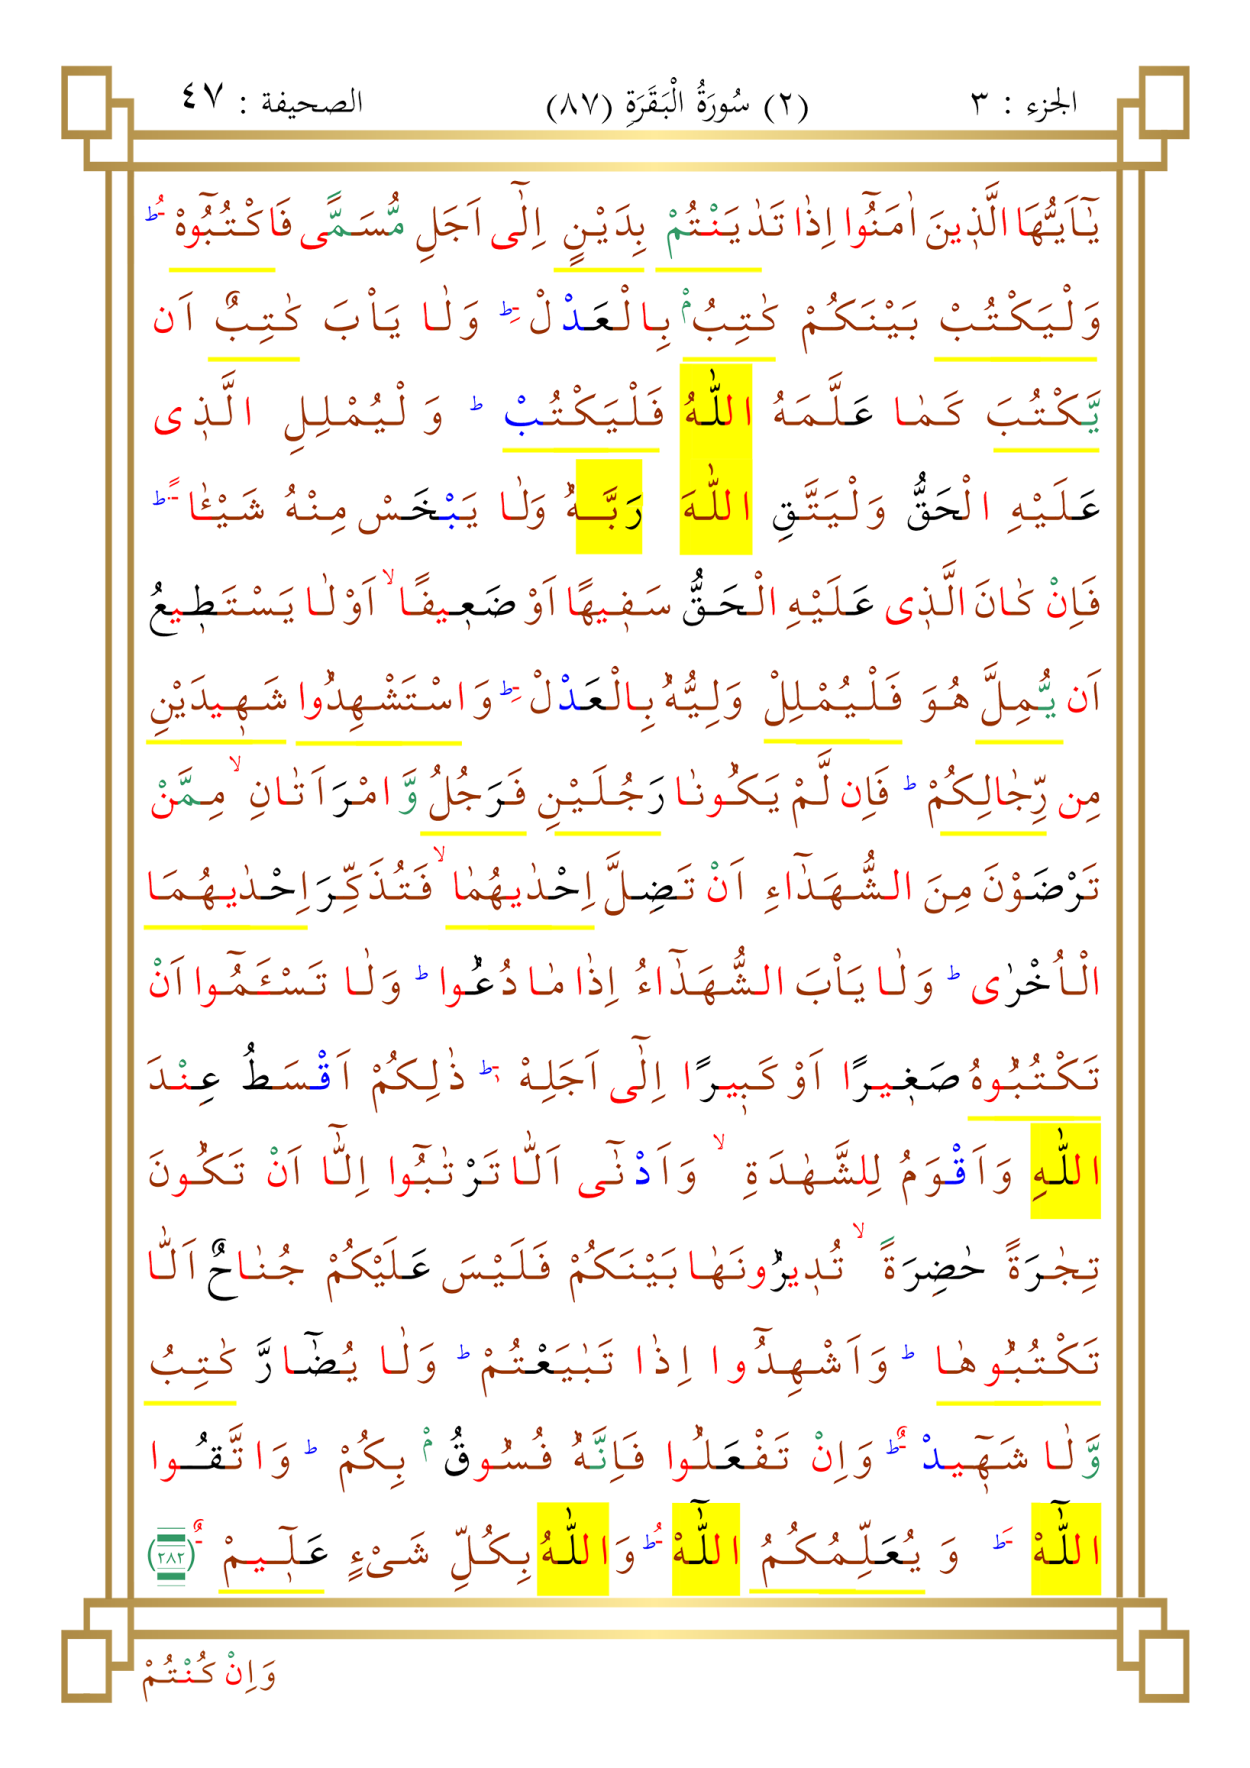 الجزء : ٣
(٢) سُورَةُ الْبَقَرَةِ (٨٧)
الصحيفة : ٤٧
يٰٓاَيُّهَا الَّذِينَ اٰمَنُٓوا اِذٰا تَدٰيَنْتُمْ بِدَيْنٍ اِلٰٓى اَجَلٍ مُّسَمًّى فَاكْتُبُٓوهْ ۘ ط
وَلْيَكْتُبْ بَيْنَكُمْ كٰتِبُ ۢ بِالْعَدْلْ ط وَلٰا يَاْبَ كٰتِبٌ اَن
يَّكْتُبَ كَمٰا عَلَّمَهُ اللّٰهُ فَلْيَكْتُبْ ط وَ لْيُمْلِلِ الَّذٖى
عَلَيْهِ الْحَقُّ وَلْيَتَّقِ اللّٰهَ رَبَّهُ وَلٰا يَبْخَسْ مِنْهُ شَيْـًٔا ط
فَاِنْ كٰانَ الَّذٖى عَلَيْهِ الْحَقُّ سَفٖيهًا اَوْ ضَعٖيفًا ۙ اَوْ لٰا يَسْتَطٖيعُ
اَن يُّمِلَّ هُوَ فَلْيُمْلِلْ وَلِيُّهُ بِالْعَدْلْ ط وَاسْتَشْهِدُوا شَهٖيدَيْنِ
مِن رِّجٰالِكُمْ ط فَاِن لَّمْ يَكُونٰا رَجُلَيْنِ فَرَجُلُ وَّامْرَاَتٰانِ ۙ مِمَّنْ
تَرْضَوْنَ مِنَ الشُّهَدَٓاءِ اَنْ تَضِلَّ اِحْدٰيهُمٰا ۙ فَتُذَكِّرَ اِحْدٰيهُمَا
الْاُخْرٰى ط وَلٰا يَاْبَ الشُّهَدَٓاءُ اِذٰا مٰا دُعُوا ط وَلٰا تَسْـَٔمُٓوا اَنْ
تَكْتُبُوهُ صَغٖيرًا اَوْ كَبٖيرًا اِلٰٓى اَجَلِهْ ط ذٰلِكُمْ اَقْسَطُ عِنْدَ
اللّٰهِ وَاَقْوَمُ لِلشَّهٰدَةِ ۙ وَاَدْنٰٓى اَلّٰا تَرْتٰبُٓوا اِلّٰٓا اَنْ تَكُونَ
تِجٰرَةً حٰضِرَةً ۙ تُدٖيرُونَهٰا بَيْنَكُمْ فَلَيْسَ عَلَيْكُمْ جُنٰاحٌ اَلّٰا
تَكْتُبُوهٰا ط وَاَشْهِدُٓوا اِذٰا تَبٰيَعْتُمْ ط وَلٰا يُضَٓارَّ كٰتِبُ
وَّلٰا شَهٖٓيدْ ط وَاِنْ تَفْعَلُوا فَاِنَّهُ فُسُوقُ ۢ بِكُمْ ط وَاتَّقُوا
اللّٰٓهْ ط وَ يُعَلِّمُكُمُ اللّٰٓهْ ط وَاللّٰهُ بِكُلِّ شَىْءٍ عَلٖٓيمْ ﴿٢٨٢﴾
وَاِنْ كُنْتُمْ